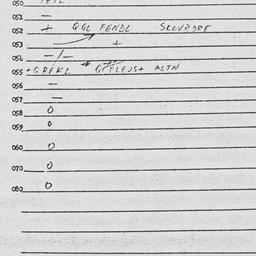 050
051 —
052 + QGL FENDL SKOVRDRF
053 +
054 —/—
055 + GREKL ALTN
056 —
057 —
058 0
059 0
060 0
070 0
080 0